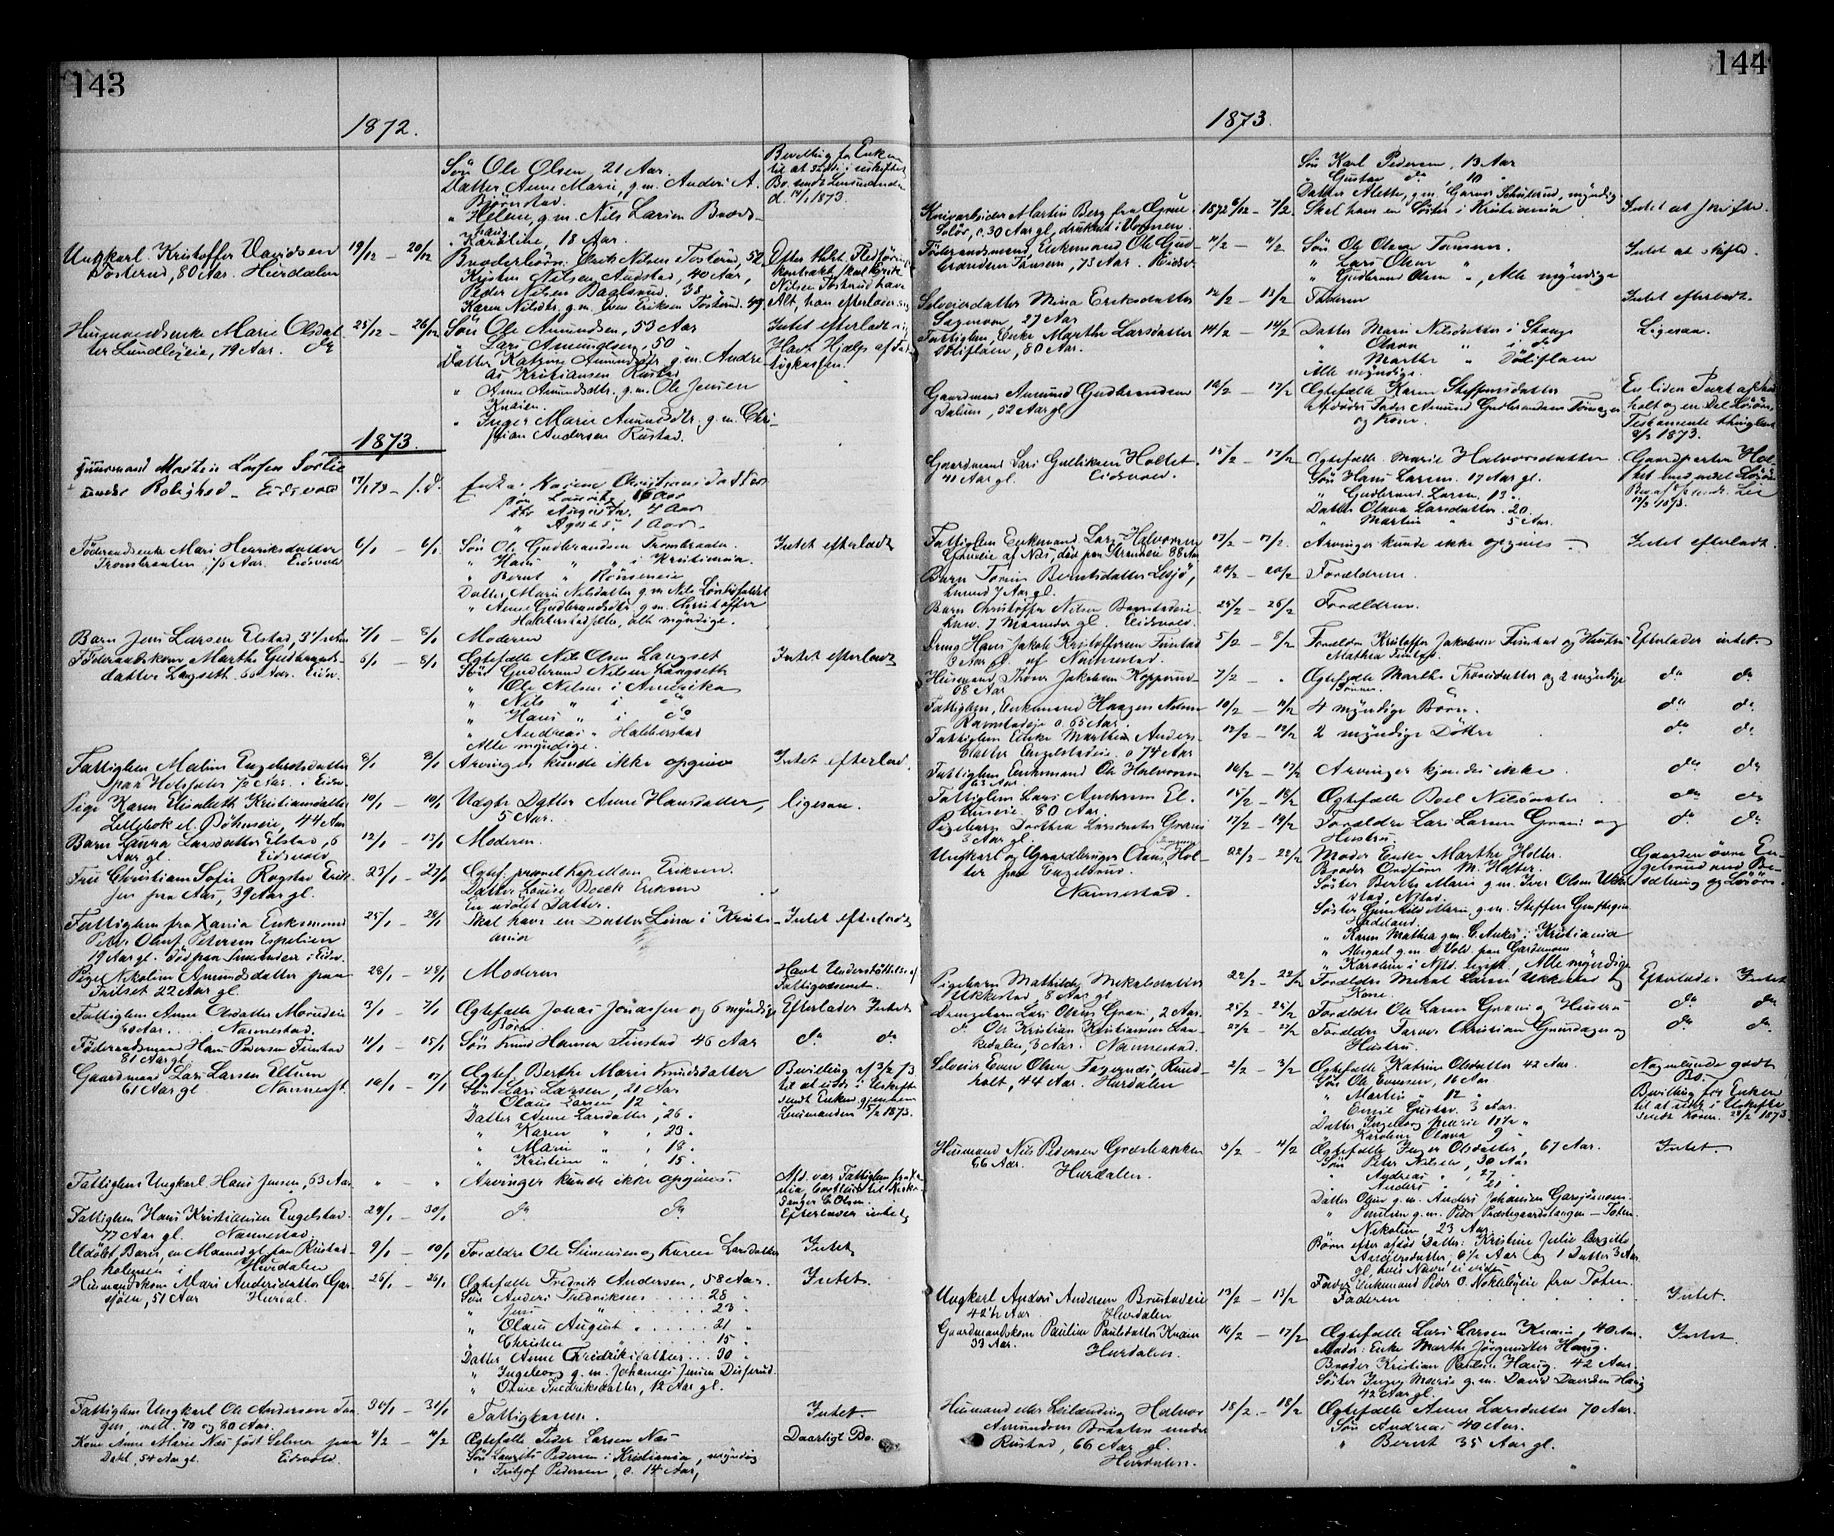 143
1872.
Søn Ole Olsen 21 Aar.
Datter Anne Marie, g.m. Anders A.
Bjørnstad.
" Helene, g.m. Nils Larsen Brøds-
haug
" Karoline, 18 Aar.
Bevilling for Enken
til at sidde i uskiftet
Bo sendt Lensmanden
d. 14/1 1873.
Ungkarl Kristoffer Davidsen
Tosterud, 80 Aar. Hurdalen
19/12 — 20/12
Broderbörn: Nilsen Tosterud, 52
Kristen Nilsen Audstad, 40 Aar,
Peder Nilsen Baglerud, 38 "
Karen Nilsdtr, g.m. Even Eriksen Tosterud. 49
Efter tholst. Fledførings-
kontrakt skal
Nilsen Tosterud have
Alt, han efterlader sig
Husmandsenke Marie Olsdat-
ter Lundbyeie, 79 Aar. do
25/12 — 26/12
Søn Ole Amundsen, 53 Aar
" Lars Amundsen, 50
Datter Katrine Amundsdtr g.m. Andre-
as Kristiansen Rustad
" Anne Amundsdtr. g.m. Ole Jensen
Knaien.
" Inger Marie Amundsdtr. g.m. Chri-
stian Andersen Rustad.
Intet efterladt
Havt Hjælp af Fat-
tigkassen.
1873.
Huusmand Morten Larsen Sorlie
under Rolighed - Eidsvold
17/1 73 — s.d.
Enke Karine Christiansdatter
Søn Lauritz, 16 Aar
Dtr Augusta, 4 Aar
" Agnes, 1 Aar.
Føderaadsenke Mari Henriksdatter
Trombraaten, 75 Aar. Eidsvold
6/1 — 6/1
Søn Ole Gudbrandsen Trombraaten.
" Hans " " i Kristiania
" Bernt " Rönseneie
Datter Marie Nilsdatter g.m. Nils
" Anne Gudbrandsdtr g.m. Christoffer
Halberstad, alle myndige.
Intet efterladt
Barn Jens Larsen Elstad,
7/1 — 8/1
Moderen
Føderaadskone Marthe Gudbrands-
datter Langseth. 65 Aar. Eidsv.
6/1 — 8/1
Ægtefælle Nils Olsen Langset
Søn Gudbrand Nilsen Langseth
" Ole Nilsen i Amerika
" Nils " i "
" Hans " i do
" Andreas " Halberstad
Alle myndige.
Intet efterladt
Fattiglem Malene Engebretsdatter
paa Holsjordet 72 Aar. i Eidsv.
8/1 8/1
Arvinger kunde ikke opgives
Intet efterladt.
Pige Karen Elisabeth Kristiansdatter
Lillebok el. Böhnseie, 44 Aar
10/1 — 10/1
Uægte Datter Anne Hansdatter,
5 Aar.
ligesaa.
Barn Laura Larsdatter Elstad, 5
Aar gl. Eidsvold
12/1 — 13/1
Moderen.
Frue Christiane Sofie Rogstad Erik-
sen fra Aas, 39 Aar gl.
23/1 — 27/1
Ægtef. personel Kapellan Eriksen.
Datter Louise Eriksen
En udöbt Datter.
Fattiglem fra Xania Enkemand
Peter Oluf Petersen Espelien
79 Aar gl. Död paa i Eidsv.
25/1 — 28/1
Skal have en Datter Lina i Kristi-
ania
Intet efterladt
Pige Nikoline Amundsdatter paa
Tritset 22 Aar gl.
28/1 — 28/1
Moderen
Havt Understöttelse af
Fattigvæsenet.
Fattiglem Anne Olsdatter
60 Aar. Nannestad.
3/1 — 7/1
Ægtefælle Johas Jonassen og 6 myndige
Börn.
Efterlader Intet.
Føderaadsmand Hans Pedersen Finstad
81 Aar gl.
11/1 — 15/1
Søn Knud Hansen Finstad 46 Aar
do do
Gaardmand Lars Larsen Eltun
61 Aar gl Nannest.
16/1 — 17/1
Ægtef. Berthe Marie Knudsdatter
Søn Lars Larsen, 21 Aar
" Olaus Larsen 12 "
Datter Anne Larsdatter, 26 "
" Karen " , 23 "
" Marie " , 18 "
" Kristine " , 15 "
Bevilling af 3/2 73
til at sidde i Uskiftet
sendt Enken gjennem
Lensmanden 15/2 1873.
Fattiglem Ungkarl Hans Jensen, 63 Aar
" — "
Arvinger kunde ikke opgives.
Afd. var Fattiglem fra Xa-
nia, bortsat til Kirke-
sanger C. Olsen.
Efterlader intet.
Fattiglem Hans Kristiansen Engelstad
77 Aar gl. Nannestad.
29/1 — 30/1
do do
Udöbt Barn, en Maaned gl. paa Rustad-
holmen i Hurdalen
9/1 — 10/1
Forældre Ole Simensen og Karen Larsdatter
Intet
Husmandskone Mari Andersdatter Gar-
sjøen, 51 Aar Hurdal.
25/1 — 25/1
Ægtefælle Fredrik Andersen, 58 Aar.
Søn Anders Fredriksen ..... 28 "
" Jens " ..... 23 "
" Olaus August " ..... 21 "
" Christen " ..... 15 "
Datter Anne Fredriksdatter ... 30 "
" Ingeborg g.m. Johannes Jensen Disserud.
" Oline Fredriksdatter, 12 Aar gl.
Intet.
Fattiglem Ungkarl Ole Andersen
mell. 70 og 80 Aar.
30/1 — 31/1
Fattigkassen.
Intet.
Kone Anne Marie Næs født paa
Dahl, 54 Aar gl. Eidsvold.
4/2 — 4/2
Ægtefælle Peder Larsen Næs
Søn Lauritz Pedersen i Kristiania, myndig
" Fritjof Pedersen, c. 14 Aar,
Daarligt Bo.
144
1873.
Søn Karl Pedersen, 13 Aar
" Gustav do 10 "
Datter Alethe, g.m. Garver Schulerud, myndig
Martin Berg fra Grue
Solör, c. 30 Aar gl, druknet i Vormen.
1872 6/12 — 7/2
Skal have en Søster i Kristiania
Intet at skifte.
Föderaadsmand, Enkemand Ole Gud-
brandsen Tønsem, 73 Aar. Eidsv.
4/2 — 4/2
Søn Ole Olsen Tønsem.
" Lars Olsen "
" Gudbrand Olsen " , Alle myndige
Intet at skifte.
Selveierdatter Mina Eriksdatter
Sagmoen 27 Aar
12/2 — 13/2
Faderen
Intet efterladt.
Fattiglem, Enke Marthe Larsdatter
Döliflaen, 80 Aar.
14/2 — 14/2
Datter Marie Nilsdatter i Stange
" Olava " i do
" Marthe " Döliflaen
Alle myndige.
Ligesaa.
Gaardmand Amund Gudbrandsen
Dalum, 52 Aar gl
16/2 — 17/2
Ægtefælle Karen Steffensdatter
Afdødes Fader Amund Gudbrandsen
og Kone.
En liden Part af
holt og en Del Løsöre,
Testamente thinglæst
1873.
Gaardmand Lars Gulliksen Holtet
41 Aar gl. Eidsvold.
15/2 — 17/2
Ægtefælle Marie Halvorsdatter
Søn Hans Larsen. 17 Aar gl.
" Gudbrand Larsen. 13 "
Datter Olava Larsdatter. 20.
" Martin " 5 Aar.
Gaardparten Hol-
tet med endel Løsöre
1873.
Fattiglem Enkemand Lars Halvorsen
af Næs död paa 88 Aar
17/2 — 17/2.
Arvinger kunde ikke opgives
Intet efterladt.
Barn Tomine Berntsdatter Lesjö,
7 Aar gl.
20/2 — 20/2
Forældrene.
Barn Christoffer Nilsen
7 Maaneder gl. Eidsvold.
25/2 — 26/2
Forældrene.
Dreng Hans Jakob Kristoffersen Finstad
3 Aar gl. af Nannestad.
5/2 — 8/2
Forældre Kristoffer Jakobsen Finstad og Hustru
Mathea
Efterlader intet
Husmand, Thorer Jakobsen Kopperud
68 Aar
7/2 — "
Ægtefælle Marthe Thoresdatter og 2 myndige
Sønner.
do do
Fattiglem, Enkemand Haagen Nilsen
Ramstadeie c. 65 Aar.
10/2 — 11/2
4 myndige Börn.
do do
Fattiglem Enke Marthea Anders-
datter Engelstadeie c. 74 Aar
12/2 — 12/2
2 myndige Döttre
do do
Fattiglem Enkemand Ole Halvorsen
63 Aar
16/2 — 17/2
Arvinger kjendes ikke
do do
Fattiglem Lars Andersen El-
tuneie, 80 Aar.
15/2 — 18/2
Ægtefælle Boel Nilsdatter
do do
Pigebarn Dorthea Larsdatter Grani
3 Aar gl.
17/2 — 19/2
Forældre Lars Larsen Grani og
Hustru
do do
Ungkarl og Gaardbruger Claus Hol-
ter paa Engelsrud
Nannestad.
22/2 — 22/2
Moder Enke Marthe Holter.
Broder Ordfører M. Holter.
Søster Berthe Marie g.m. Iver Olsen
stad, Nitstad.
Søster Gunhild Marie, g.m. Steffen
Hadeland.
" Karen Mathea g.m. C. Anker i Kristiania
" Abigael g.m. Vold paa Gardermoen
" Karoline i Nitd. ugift, Alle myndige
Gaarden øvre En-
gelsrud med Be-
sætning og Løsöre.
Pigebarn Mathilde Mikalsdatter
Ukkestad, 8 Aar gl
22/2 — 22/2
Forældre Mikal Larsen Ukkestad og
Kone.
Efterlader Intet
Drengebarn Lars Olsen Grani, 2 Aar.
25/2 — 25/2
Forældre Ole Larsen Grani og Hustru
do do
do Ole Kristian Kristiansen
3 Aar. Nannestad.
27/2 — 27/2
Forældre Farver Christian og
Hustru
do do.
Selveier Even Olsen Fagernæs, Rund-
holt, 44 Aar. Hurdalen
2/2 — 3/2
Ægtefælle Katrine Olsdatter 42 Aar.
Søn Ole Evensen, 16 Aar
" Martin " 12 "
" Emil Gustav. 3 Aar.
Datter Ingeborg Marie 11½ "
" Karoline Olava 9 "
Nogenlunde godt
Bo.
Bevilling for Enken
til at sidde i Uskiftet
sendt Konen. 28/2 1873
Husmand Nils Pedersen Græsbakken
66 Aar. Hurdalen.
3/2 — 4/2
Ægtefælle Inger Olsdatter, 67 Aar.
Søn Peter Nilsen, 30 Aar
" Andreas " , 27 "
" Anders " , 21 "
Datter Oline g.m. Anders Johansen Garsjømoen.
" Pauline g.m. Peder Præstegaardstangen — Toten.
" Nikoline, 23 Aar.
Börn efter afdöd Datter: Kristine Julie
Andersdatter, 6½ Aar og 1 Datter 3 Aar
gl, hvis Navn ei vides
Fader Enkemand Peder O. Nøkkelbyeie fra Toten.
Intet.
Ungkarl Anders Andersen Brustadeie
42½ Aar Hurdalen
13/2 — 13/2
Faderen
Intet.
Gaardmandskone Pauline Paulsdatter Knaien
33 Aar. Hurdalen.
16/2 — 17/2
Ægtefælle Lars Larsen Knaien, 40 Aar.
Moder: Enke Marthe Jörgensdatter Haug.
Broder Kristian Paulsen Haug. 42 Aar.
Søster Inger Marie g.m. David Davidsen Haug
42 Aar gl.
Intet.
Husmand eller Leilænding Halvor
Amundsen Braaten under
Rustad, 66 Aar gl.
Hurdalen.
18/2. — 18/2
Ægtefælle Anne Larsdatter 70 Aar.
Søn Andreas 40 Aar.
" Bernt 35 Aar gl.